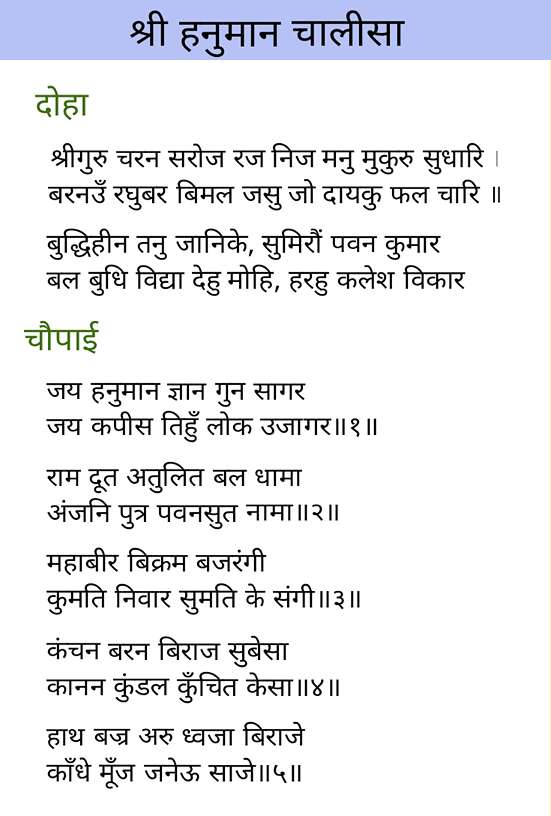 श्री हनुमान चालीसा
दोहा
श्रीगुरु चरन सरोज रज निज मनु मुकुरु सुधारि ।
बरनउँ रघुबर बिमल जसु जो दायकु फल चारि ॥
बुद्धिहीन तनु जानिके, सुमिरौं पवन कुमार
बल बुधि विद्या देहु मोहि, हरहु कलेश विकार
चौपाई
जय हनुमान ज्ञान गुन सागर
जय कपीस तिहुँ लोक उजागर॥१॥
राम दूत अतुलित बल धामा
अंजनि पुत्र पवनसुत नामा॥२॥
महाबीर बिक्रम बजरंगी
कुमति निवार सुमति के संगी॥३॥
कंचन बरन बिराज सुबेसा
कानन कुंडल कुँचित केसा॥४॥
हाथ बज्र अरु ध्वजा बिराजे
काँधे मूँज जनेऊ साजे॥५॥